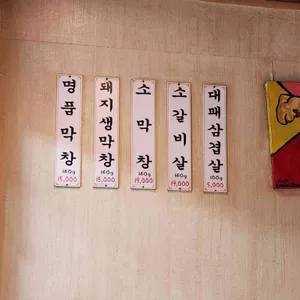 명품막창
160g
15,000
돼지생막창
160g
15,000
소막창
160g
19,000
소갈비살
160g
19,000
대패삼겹살
100g
5,000